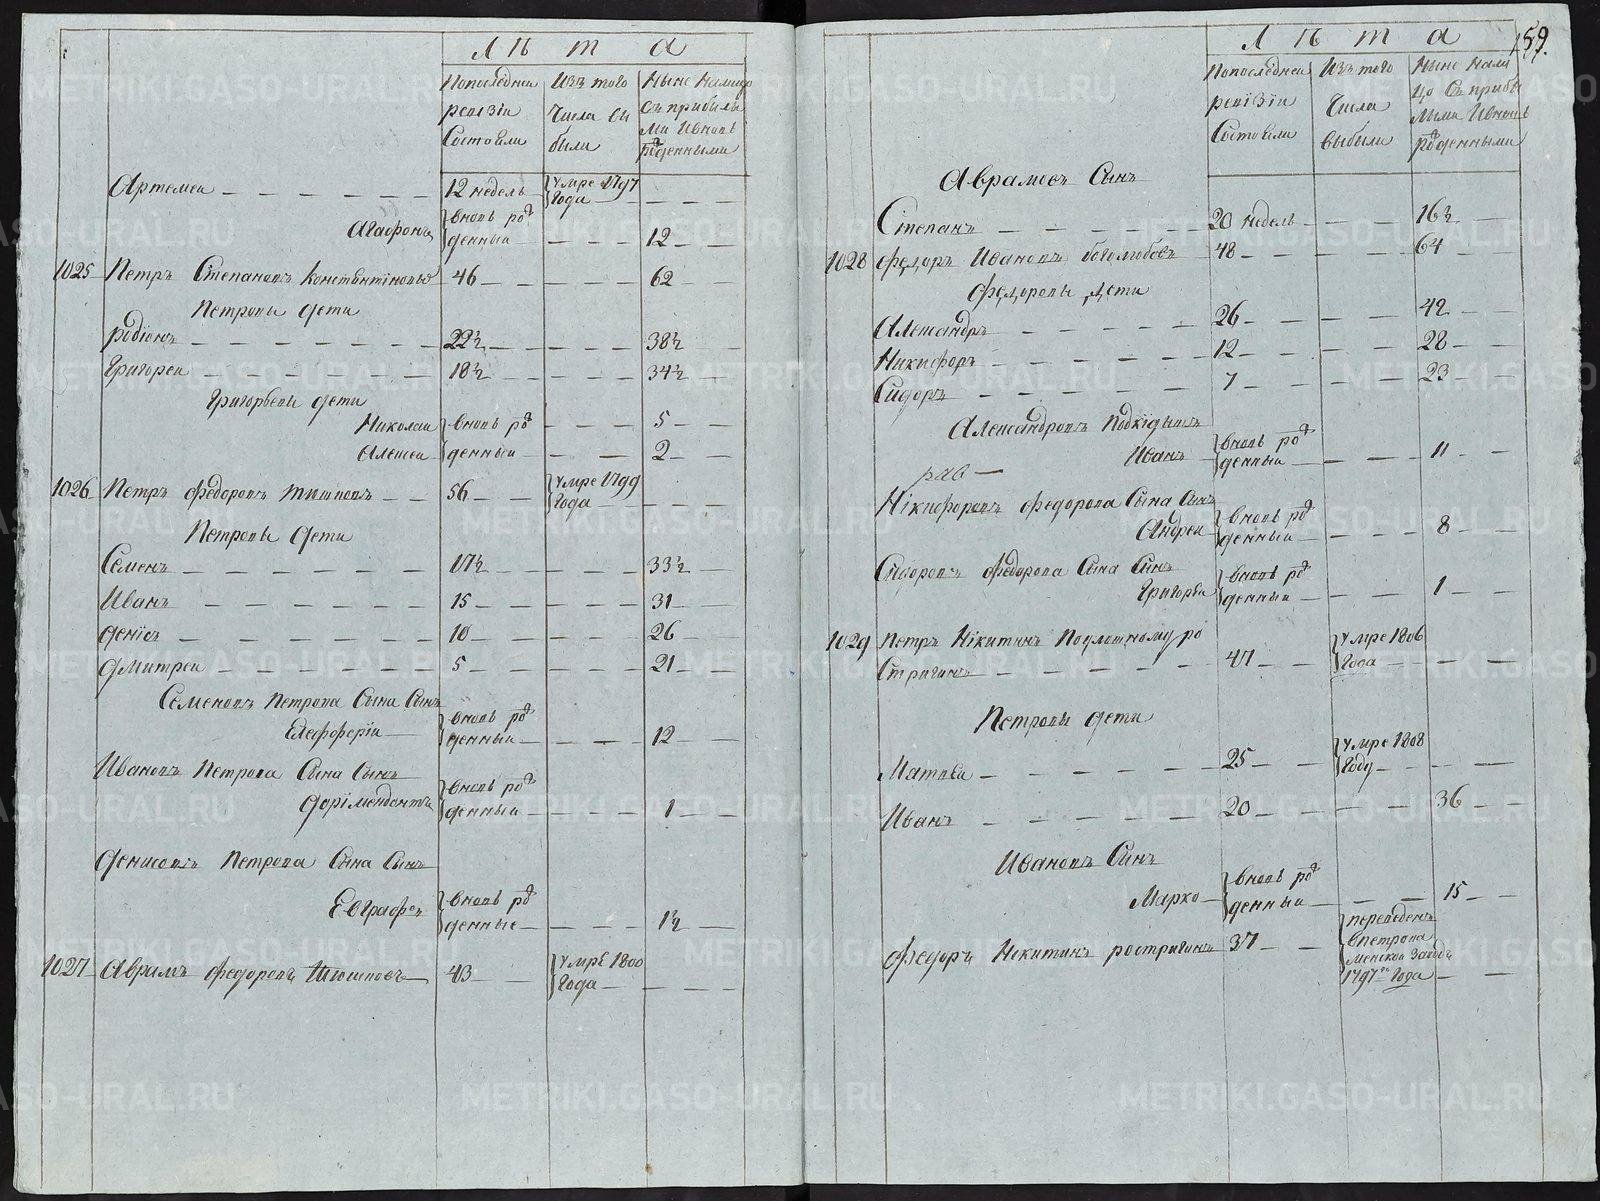 Л ѣ т а
Попоследней ревизiи состояли
Изъ того числа выбыли
Ныне налицо съ прибылыми и вновь рожденными
Артемеи 12 недель умре 1797 года
Агафонъ вновь рожденный 12
1025 Петръ Степановъ Константiновъ 46 62
Петровы дети
Родiонъ 22½ 38½
Григореи 18½ 34½
Григорьевы дети
Николаи вновь рожденный 5
Алексеи 2
1026 Петръ Федоровъ 56 умре 1799 года
Петровы дети
Семенъ 17½ 33½
Иванъ 15 31
Денiсъ 10 26
Дмитреи 5 21
Семеновъ Петрова сына сынъ
Елефферiи вновь рожденный 12
Ивановъ Петрова сына сынъ
вновь рожденный 1
Денисовъ Петрова сына сынъ
Евграфъ вновь рожденные 1½
1027 Аврамъ Федоровъ 43 умре 1800 года
159.
Л ѣ т а
Попоследней ревизiи состояли
Изъ того числа выбыли
Ныне налицо съ прибылыми и вновь рожденными
Аврамовъ сынъ
Степанъ 20 недель 16½
1028 Федоръ Ивановъ Боголюбовъ 48 64
Федоровы дети
Александръ 26 42
Никифоръ 12 28
Сидоръ 7 23
Александровъ подкiдышъ
Иванъ вновь рожденный 11
Нiкифоровъ Федорова сына сынъ
Андреи вновь рожденный 8
Сидоровъ Федорова сына сынъ
Григореи вновь рожденный 1
1029 Петръ Нiкитинъ Поулошному Ро
стригинъ 47 умре 1806 года
Петровы дети
Матвеи 25 умре 1808 году
Иванъ 20 36
Ивановъ сынъ
Марко вновь рожденный 15
Федоръ Никитинъ Ростригинъ 37 переведенъ
впетрока
менской заводъ
1797го года
METRIKI.GASO-URAL.RU